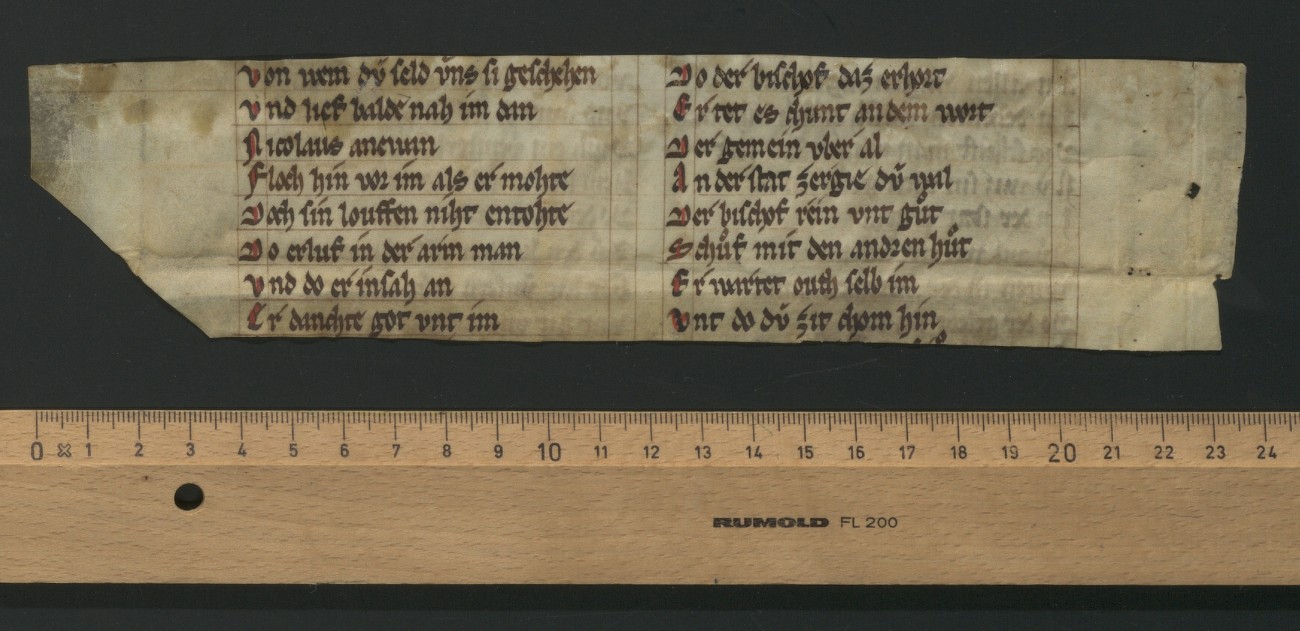 Von wem dv̈ seld v̈ns si geschehen
Vnd lief balde nah im dan
Nicolaus
Floch hin vor im als er mohte
Doch sin louffen niht entohte
Do erluf in der arm man
Vnd do er in sah an
Er danchte got vnt im
Do der bischof daz erhort
Er tet es chunt an dem wort
Der gemein vber al
An der stat zergie dv̈ wal
Der bischof rein vnt gůt
Schůf mit den andren hůt
Er wartet ouch selb im
Vnt do dv̈ zit chom hin
0 1 2 3 4 5 6 7 8 9 10 11 12 13 14 15 16 17 18 19 20 21 22 23 24
RUMOLD FL 200